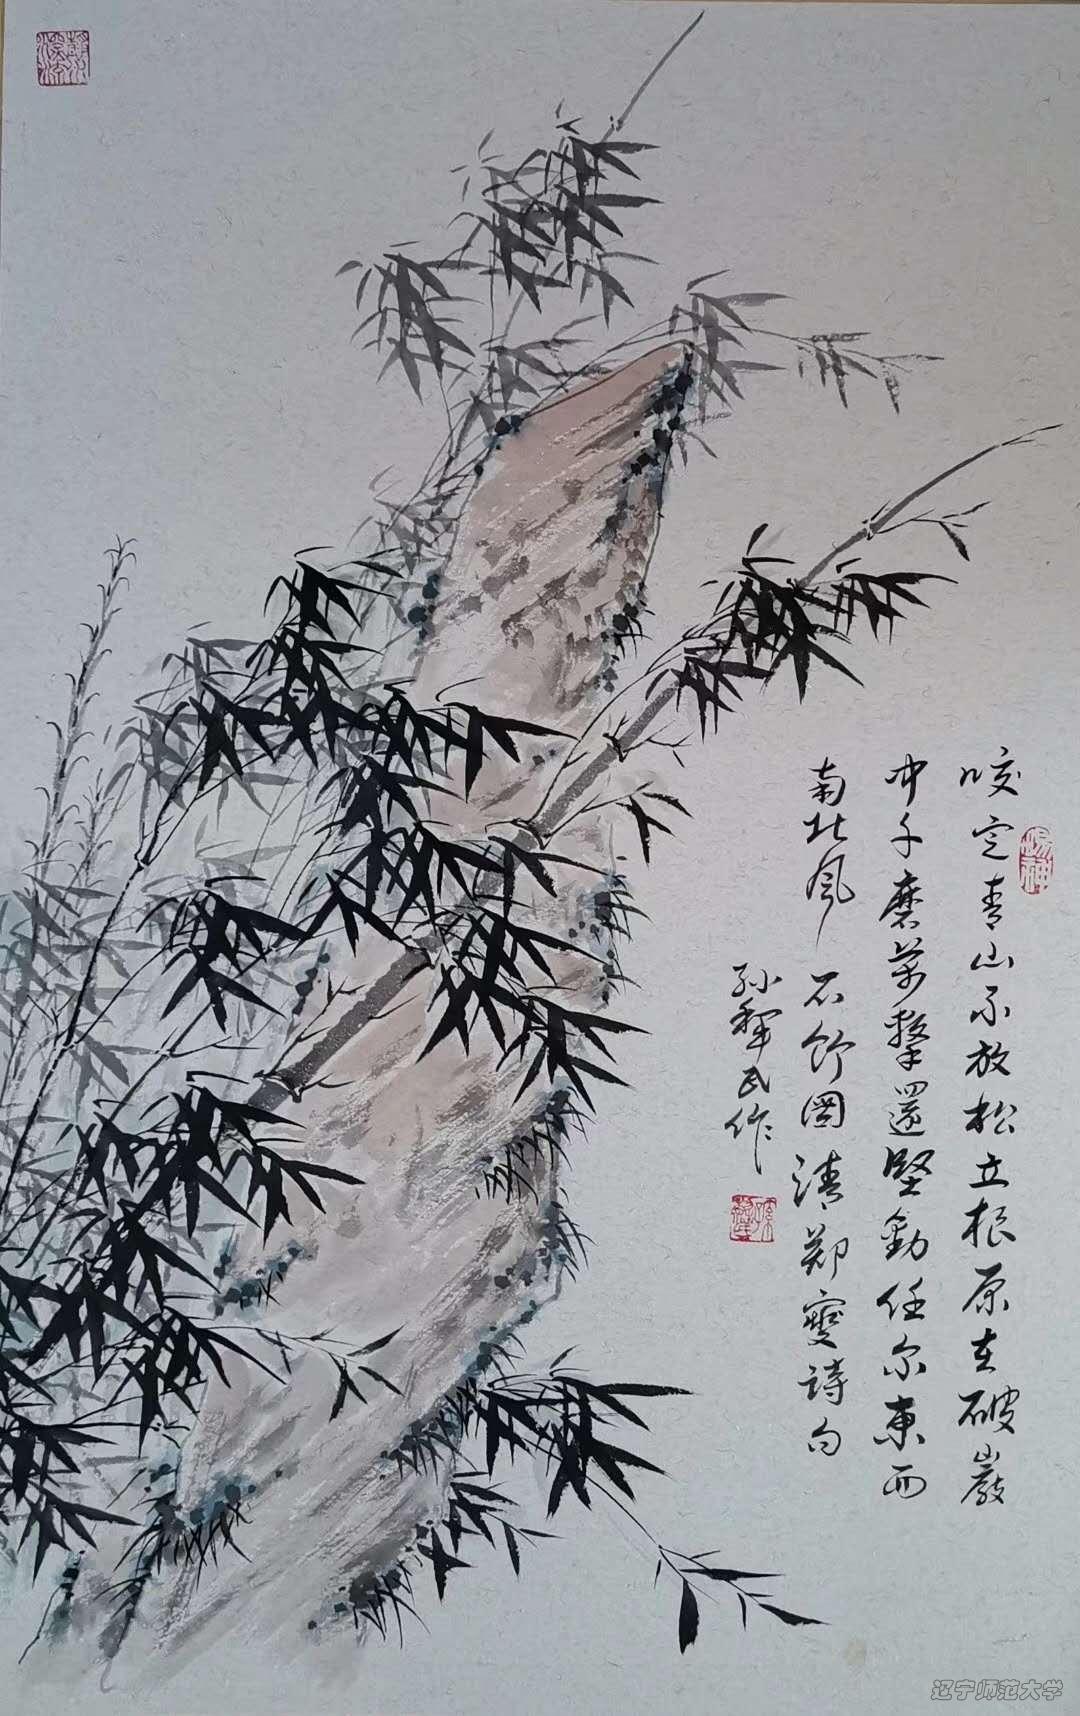 咬定青山不放松立根原在破巖
中千磨萬擊還堅勁任尔東西
南北风 石竹图 清郑燮诗句
孙犟民作
辽宁师范大学